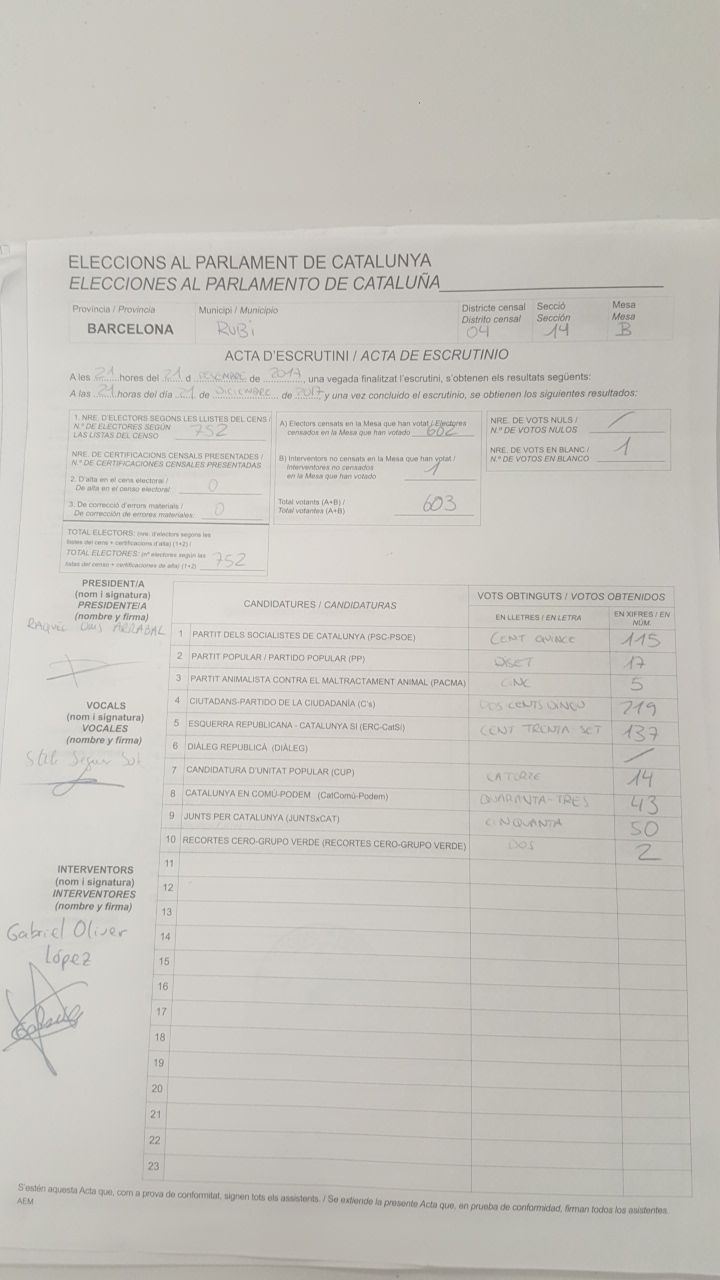 ELECCIONS AL PARLAMENT DE CATALUNYA
ELECCIONES AL PARLAMENTO DE CATALUÑA
Provincia / Provincia Municipi / Municipio Districte censal Secció Mesa
Distrito censal Sección Mesa
BARCELONA RUBí 04 14 B
ACTA D'ESCRUTINI / ACTA DE ESCRUTINIO
A les 21 hores del 21 d DESEMBRE de 2017, una vegada finalitzat l'escrutini, s'obtenen els resultats següents:
A las 21 horas del día 21 de DICIEMBRE de 2017 y una vez concluido el escrutinio, se obtienen los siguientes resultados:
1. NRE. D'ELECTORS SEGONS LES LLISTES DEL CENS /
N.º DE ELECTORES SEGÚN
LAS LISTAS DEL CENSO 752
NRE. DE CERTIFICACIONS CENSALS PRESENTADES /
N.º DE CERTIFICACIONES CENSALES PRESENTADAS
2. D'alta en el cens electoral /
De alta en el censo electoral: 0
3. De correcció d'errors materials /
De corrección de errores materiales: 0
TOTAL ELECTORS: (nre. d'electors segons les
llistes del cens + certificacions d'alta) (1+2) /
TOTAL ELECTORES: (nº electores según las
listas del censo + certificaciones de alta) (1+2) 752
A) Electors censats en la Mesa que han votat / Electores
censados en la Mesa que han votado 602
B) Interventors no censats en la Mesa que han votat /
Interventores no censados
en la Mesa que han votado 1
Total votants (A+B) /
Total votantes (A+B) 603
NRE. DE VOTS NULS /
N.º DE VOTOS NULOS /
NRE. DE VOTS EN BLANC /
N.º DE VOTOS EN BLANCO 1
PRESIDENT/A
(nom i signatura)
PRESIDENTE/A
(nombre y firma)
RAQUEL ARRABAL
VOCALS
(nom i signatura)
VOCALES
(nombre y firma)
INTERVENTORS
(nom i signatura)
INTERVENTORES
(nombre y firma)
Gabriel Oliver
López
CANDIDATURES / CANDIDATURAS VOTS OBTINGUTS / VOTOS OBTENIDOS
EN LLETRES / EN LETRA EN XIFRES / EN NÚM.
1 PARTIT DELS SOCIALISTES DE CATALUNYA (PSC-PSOE) CENT QUINCE 115
2 PARTIT POPULAR / PARTIDO POPULAR (PP) DISET 17
3 PARTIT ANIMALISTA CONTRA EL MALTRACTAMENT ANIMAL (PACMA) CINC 5
4 CIUTADANS-PARTIDO DE LA CIUDADANÍA (C's) DOS CENTS DINOU 219
5 ESQUERRA REPUBLICANA - CATALUNYA SÍ (ERC-CatSí) CENT TRENTA SET 137
6 DIÀLEG REPUBLICÀ (DIÀLEG) /
7 CANDIDATURA D'UNITAT POPULAR (CUP) CATORZE 14
8 CATALUNYA EN COMÚ-PODEM (CatComú-Podem) QUARANTA-TRES 43
9 JUNTS PER CATALUNYA (JUNTSxCAT) CINQUANTA 50
10 RECORTES CERO-GRUPO VERDE (RECORTES CERO-GRUPO VERDE) DOS 2
11
12
13
14
15
16
17
18
19
20
21
22
23
S'estén aquesta Acta que, com a prova de conformitat, signen tots els assistents. / Se extiende la presente Acta que, en prueba de conformidad, firman todos los asistentes.
AEM